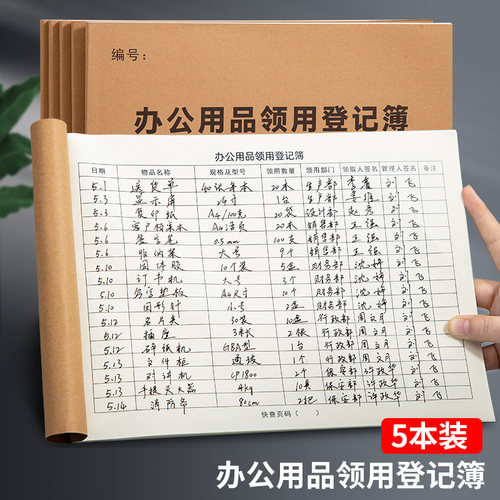 编号：
办公用品领用登记簿
办公用品领用登记簿
日期 物品名称 规格及型号 领用数量 领用部门 领取人签名 管理人签名 备注
5.1 送货单 40张每本 20本 生产部 李 刘飞
5.3 显示屏 24寸 1台 生产部 李维 刘飞
5.3 复印纸 A4/100克 20袋 设计部 赵亮 刘飞
5.6 客户档案本 A4活页 20本 销售部 王强 刘飞
5.6 签字笔 0.5mm 100支 销售部 王强 刘飞
5.6 收纳筐 大号 9个 销售部 王强 刘飞
5.10 固体胶 10个装 5盒 财务部 沈婷 刘飞
5.10 订书机 大号 3个 财务部 沈婷 刘飞
5.10 写字垫板 A4尺寸 10个 财务部 沈婷 刘飞
5.10 回形针 小号 2盒 财务部 沈婷 刘飞
5.12 名片夹 30装 10盒 行政部 周文月 刘飞
5.12 插座 3米 2个 行政部 周文月 刘飞
5.12 碎纸机 GBA型 1台 行政部 周文月 刘飞
5.13 文件柜 1个 行政部 周文月 刘飞
5.13 对讲机 CP1800 2个 保安部 许政华 刘飞
5.13 手提灭火器 4kg 10具 保安部 许政华 刘飞
5.14 消防斧 90cm 2把 保安部 许政华 刘飞
快查页码（ ）
5本装
办公用品领用登记簿